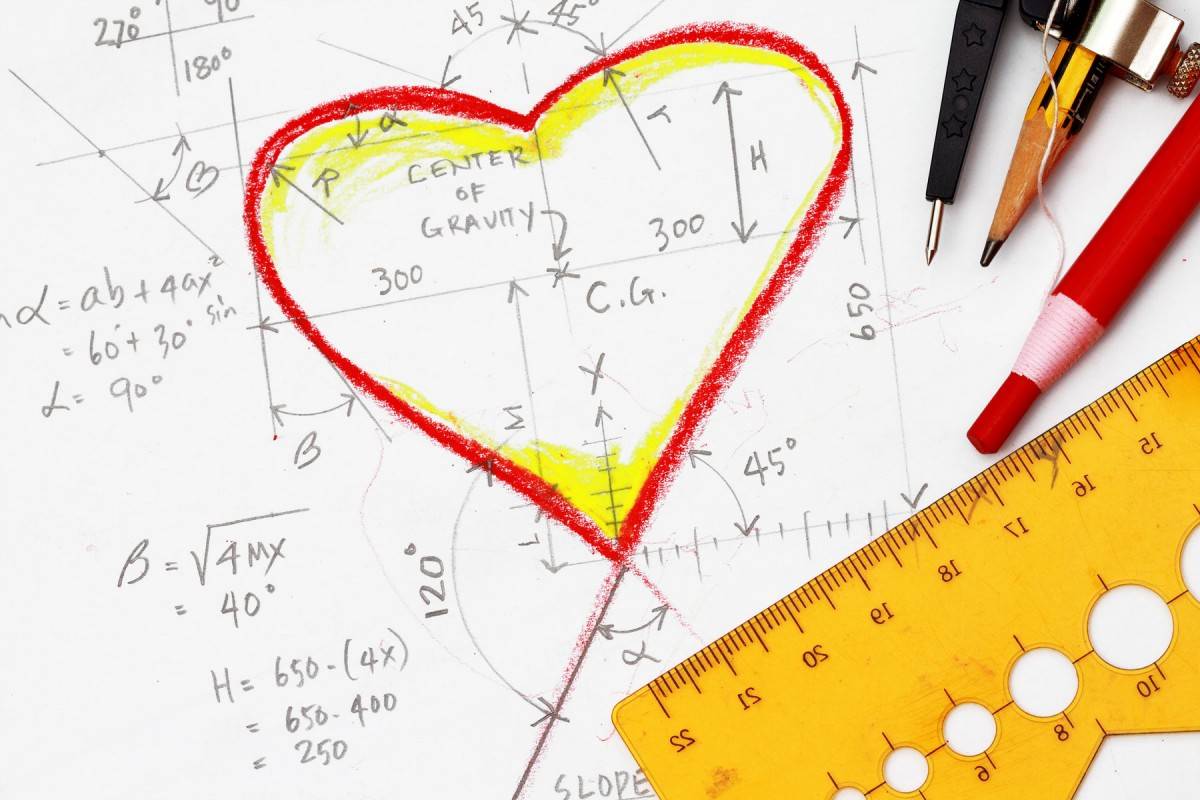 270°
90
180°
45
45°
α
R
r
H
CENTER
OF
GRAVITY
300
300
C.G.
650
α = ab + 4ax²
= 60° + 30° sin
α = 90°
β
β
X
M
L
45°
120°
β = √4MX
= 40°
H = 650 - (4X)
= 650 - 400
= 250
α
SLOPE
15
16
17
18
19
20
21
22
10
8
6